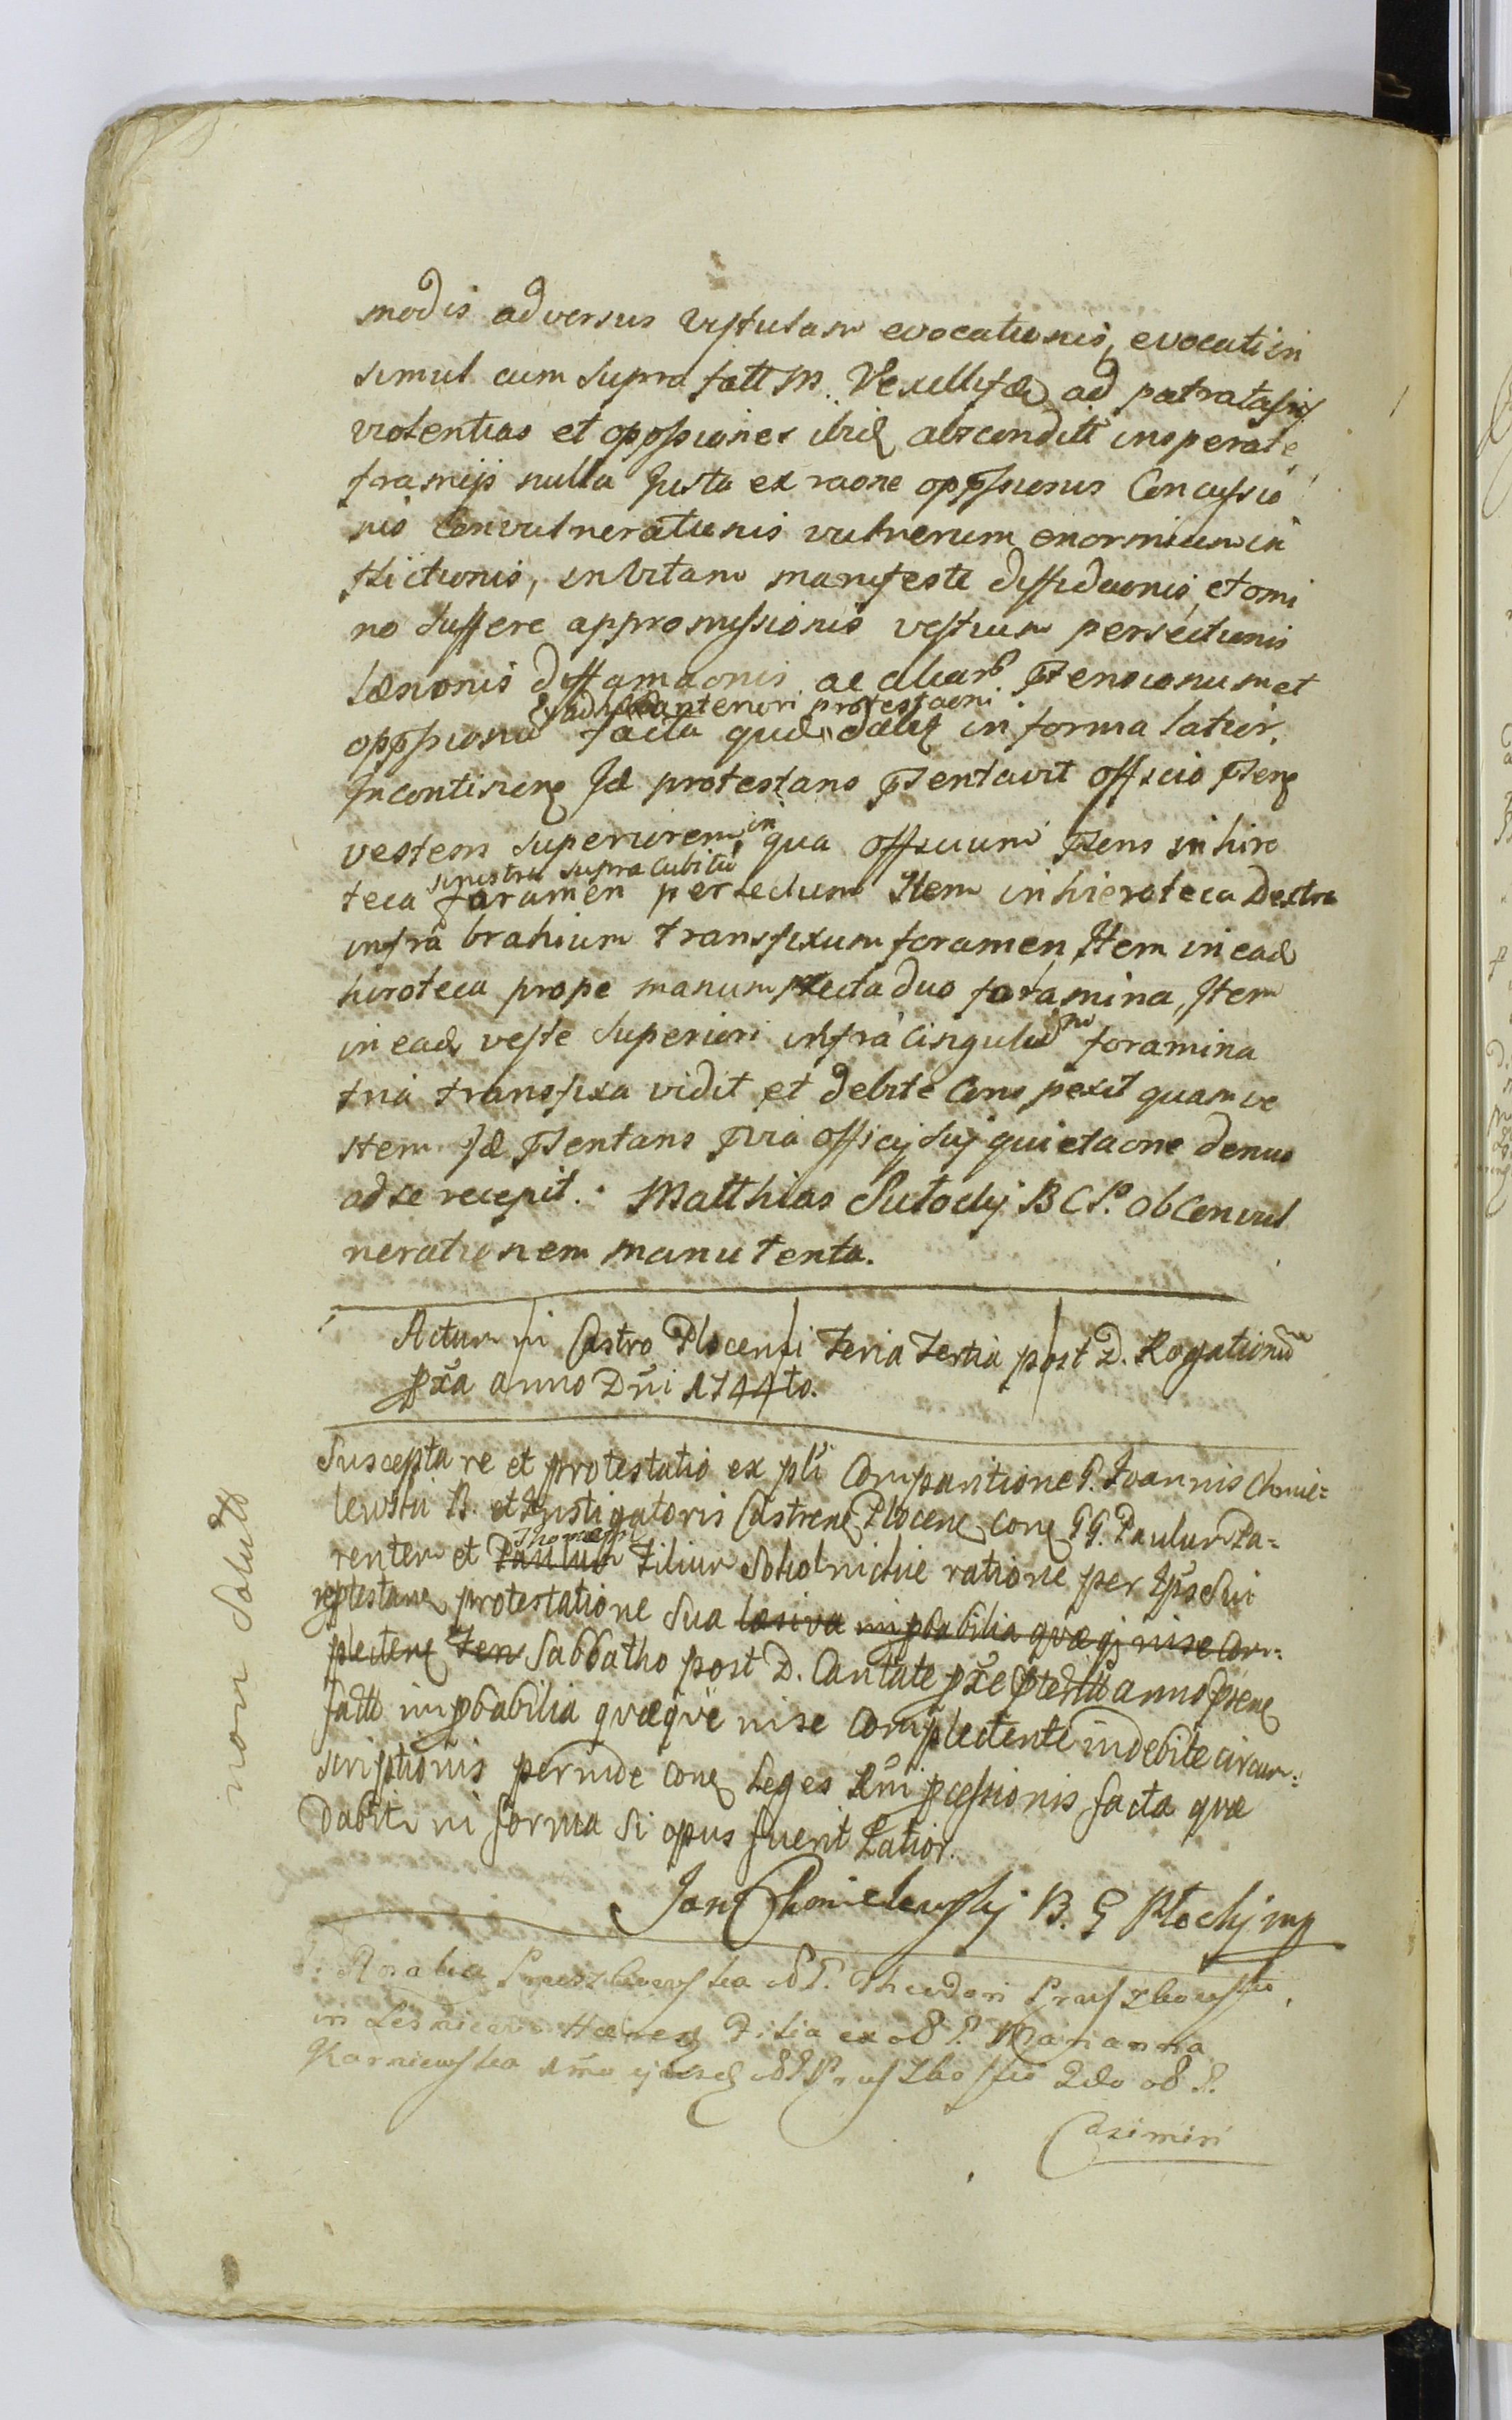 modis adversus Vistulam evocationis, evocati in
simul cum supra fatt M. Vexillifero ad patratas
violentias et oppssiones ibid abscondite insperate
frameijs nulla Justa ex raone oppssionis Concussio
nis Convulnerationis vulnerum enormium in
flictionis, in vitam manifeste diffidaonis, et omi
no suffere appromissionis vestium persectionis
Læsionis diffamaonis ac aliar Ptensionum et
oppssionu facta quæ dabit in forma latior.
ad anteriori protestaoni
Incontinenq Id protestans Psentavit officio Psenq
vestem superiorem, in qua officium Psens in hiro
teca sinistra supra cubitu foramen persectum Item in hieroteca Dextra
infra brahium transfixum foramen, Item in ead
hiroteca prope manum secta duo foramina, Item
in ead veste superiori infra cingulum foramina
tria transfixa vidit et debite Conspexit quam ve
stem Id Psentans Pvia officij sui quietaone denuo
ad se recepit. Matthias Sutocki B C P. ob Convul
nerationem manu tenta.
Actum in Castro Plocensi Feria Tertia post D. Rogationum
pxa anno Dni 1744to.
Suscepta re et protestatio ex pli Comparitione G. Joannis Chmie=
lewski B. et Instigatoris Castrenq Plocenq conq GG. Paulum Pa=
rentem et Paulum Thomam Filium Sokolnickie ratione per Ipsos sui
reptestanq protestatione sua læsiva impbabilia quæqz nise Com=
plectenq Fen Sabbatho post D. Cantate pxe pterito anno psenq
facto impbabilia quæque nise Complectente indebite circum=
scriptionis perinde conq Leges Rni pcessionis facta quæ
Dabitr in forma si opus fuerit Latior.
Jan Chmielewski B. G Płocki mp
G. Rosalia Pruszkowska olim G. Theodori Pruszkowski
in Lesniewo Hæredq Filia ex ol G. Marianna
Karniewska 1mo ejusdq ol G Pruszkowski 2do ol G.
Casimiri
non solutt